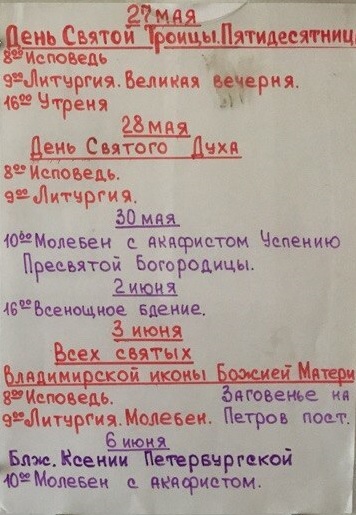 27 мая
День Святой Троицы. Пятидесятниц
8⁰⁰ Исповедь
9⁰⁰ Литургия. Великая вечерня.
16⁰⁰ Утреня
28 мая
День Святого Духа
8⁰⁰ Исповедь.
9⁰⁰ Литургия.
30 мая
10⁰⁰ Молебен с акафистом Успению
Пресвятой Богородицы.
2 июня
16⁰⁰ Всенощное бдение.
3 июня
Всех святых
Владимирской иконы Божией Матери
8⁰⁰ Исповедь. Заговенье на
9⁰⁰ Литургия. Молебен. Петров пост.
6 июня
Блж. Ксении Петербургской
10⁰⁰ Молебен с акафистом.